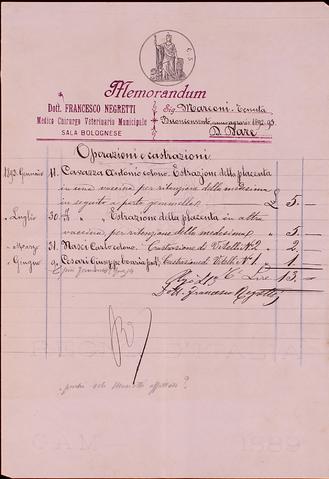 Memorandum
Dott. FRANCESCO NEGRETTI
Medico Chirurgo Veterinario Municipale
SALA BOLOGNESE
Sig. Marconi. Tenuta
Buonconvento, anno agrario 1892-93.
D. Dare
Operazioni e castrazioni
1893 Gennaio 11. Cavazza Antonio colono. Estrazioni della placenta
in una vaccina per ritenzione della medesima
in seguito a parto gemellare £ 5. —
" Luglio 30. Estrazione della placenta in altra
vaccina, per ritenzione della medesima " 5. —
" Marzo 31. Masi Carlo colono. Castrazione di Vitelli N° 2 " 2
" Giugno 9. Cesari Giuseppe Castrazione di Vitelli N° 1 " 1. —
Lire 13. —
Dott. Francesco Negretti
?